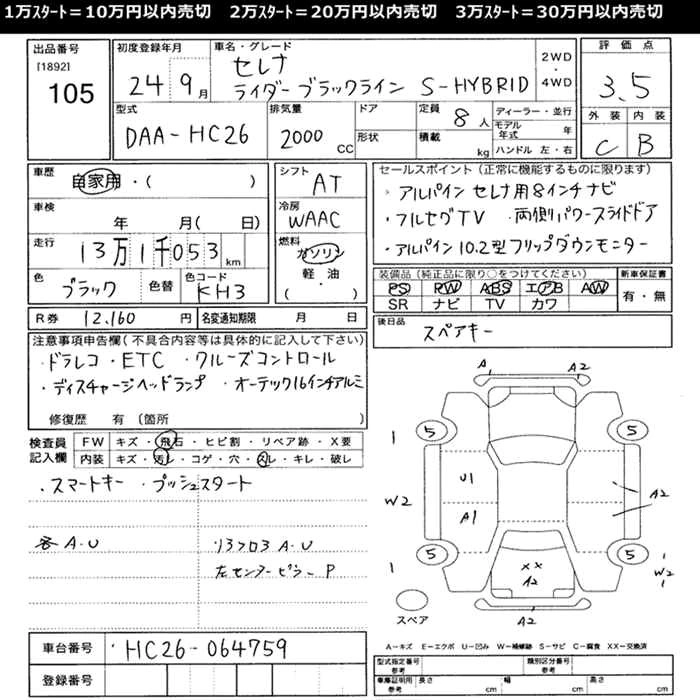 1万ｽﾀｰﾄ＝10万円以内売切　2万ｽﾀｰﾄ＝20万円以内売切　3万ｽﾀｰﾄ＝30万円以内売切
出品番号
[1892]
105
初度登録年月
24 9月
車名・グレード
セレナ
ライダー ブラックライン S-HYBRID
2WD
・
4WD
評価点
3.5
外装 内装
C B
型式
DAA-HC26
排気量
2000 CC
ドア
形状
定員
8人
積載
kg
ディーラー・並行
モデル年式 年
ハンドル 左・右
車歴
自家用・( )
車検
年 月( 日)
走行
13万1千053 km
色
ブラック
色替
色コード
KH3
シフト
AT
冷房
WAAC
燃料
ガソリン
軽・油
( )
R券 12,160 円 名変通知期限 月 日
セールスポイント(正常に機能するものに限ります)
・アルパイン セレナ用8インチナビ
・フルセグTV ・両側パワースライドドア
・アルパイン10.2型フリップダウンモニター
装備品(純正品に限り○をつけてください)
PS PW ABS エアB AW
SR ナビ TV カワ
新車保証書
有・無
後日品
スペアキー
注意事項申告欄(不具合内容等は具体的に記入して下さい)
・ドラレコ ・ETC ・クルーズコントロール
・ディスチャージヘッドランプ ・オーテック16インチアルミ
修復歴 有(箇所 )
検査員記入欄
FW キズ・飛石・ヒビ割・リペア跡・X要
内装 キズ・汚レ・コゲ・穴・スレ・キレ・破レ
・スマートキー ・プッシュスタート
各A・U
リアフロアA・U
左センターピラーP
車台番号 HC26-064759
登録番号
A A2
1 5 5
U1
W2 A1 A2
1 5 5 1
XX W2
A2
スペア A2
A－キズ E－エクボ U－凹み W－補修跡 S－サビ C－腐食 XX－交換済
型式指定番号 参考 類別区分番号 参考
車庫証明用 参考 長さ cm 幅 cm 高さ cm